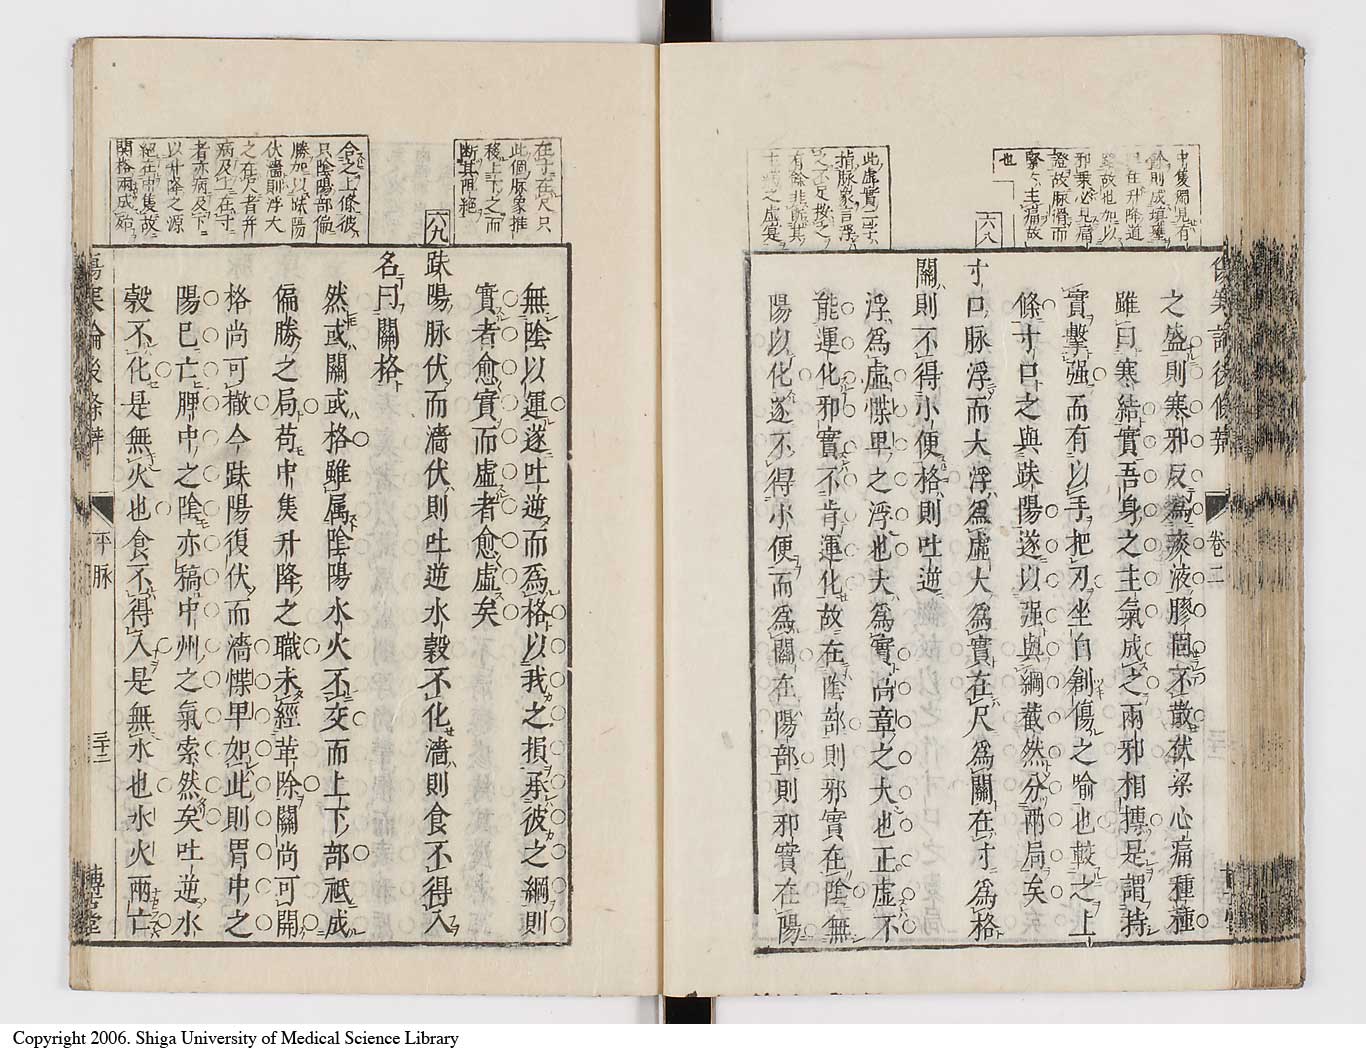 中隻獨見有
餘則成塡壅
邪乘心見痛
證故脉滑而
緊々主痛故
也
六八
此虛實二字
指脉象言浮
之不足按之
有餘非熊其
傷寒論後條辨
卷二
之盛則寒邪反爲痰液膠錮不散伏梁心痛種種
雖曰寒結實吾身之主氣成之兩邪相搏是謂持
實擊强而有以手把刃坐自創傷之喻也較之上
條寸口之與趺陽遂以强與綱截然分兩局矣
寸口脉浮而大浮爲虛大爲實在尺爲關在寸爲格
關則不得小便格則吐逆
浮爲虛慄卑之浮也大爲實尚章之大也正虛不
能運化邪實不肯運化故在陰部則邪實在陰無
陽以化遂不得小便而爲關在陽部則邪實在陽
在寸在尺只
此個脉象推
移上下之而
斷其再絕
六九
合之上條彼
只陰陽部偏
勝加以趺陽
伏濇則浮大
之在尺者并
病及上在寸
者亦病及下
以升降之源
絕在中隻故
關格兩成殆
無陰以運遂吐逆而爲格以我之損承彼之綱則
實者愈實而虛者愈虛矣
趺陽脉伏而濇伏則吐逆水穀不化濇則食不得入
名曰關格
然或關或格雖属陰陽水火不交而上下部祇成
偏勝之局苟中隻升降之職未經革除關尚可開
格尚可撤今趺陽復伏而濇慄卑如此則胃中之
陽已亡胛中之陰亦稿中州之氣索然矣吐逆水
穀不化是無火也食不得入是無水也水火兩亡
傷寒論後條辨
平脉
三十二
博古堂
Copyright 2006. Shiga University of Medical Science Library